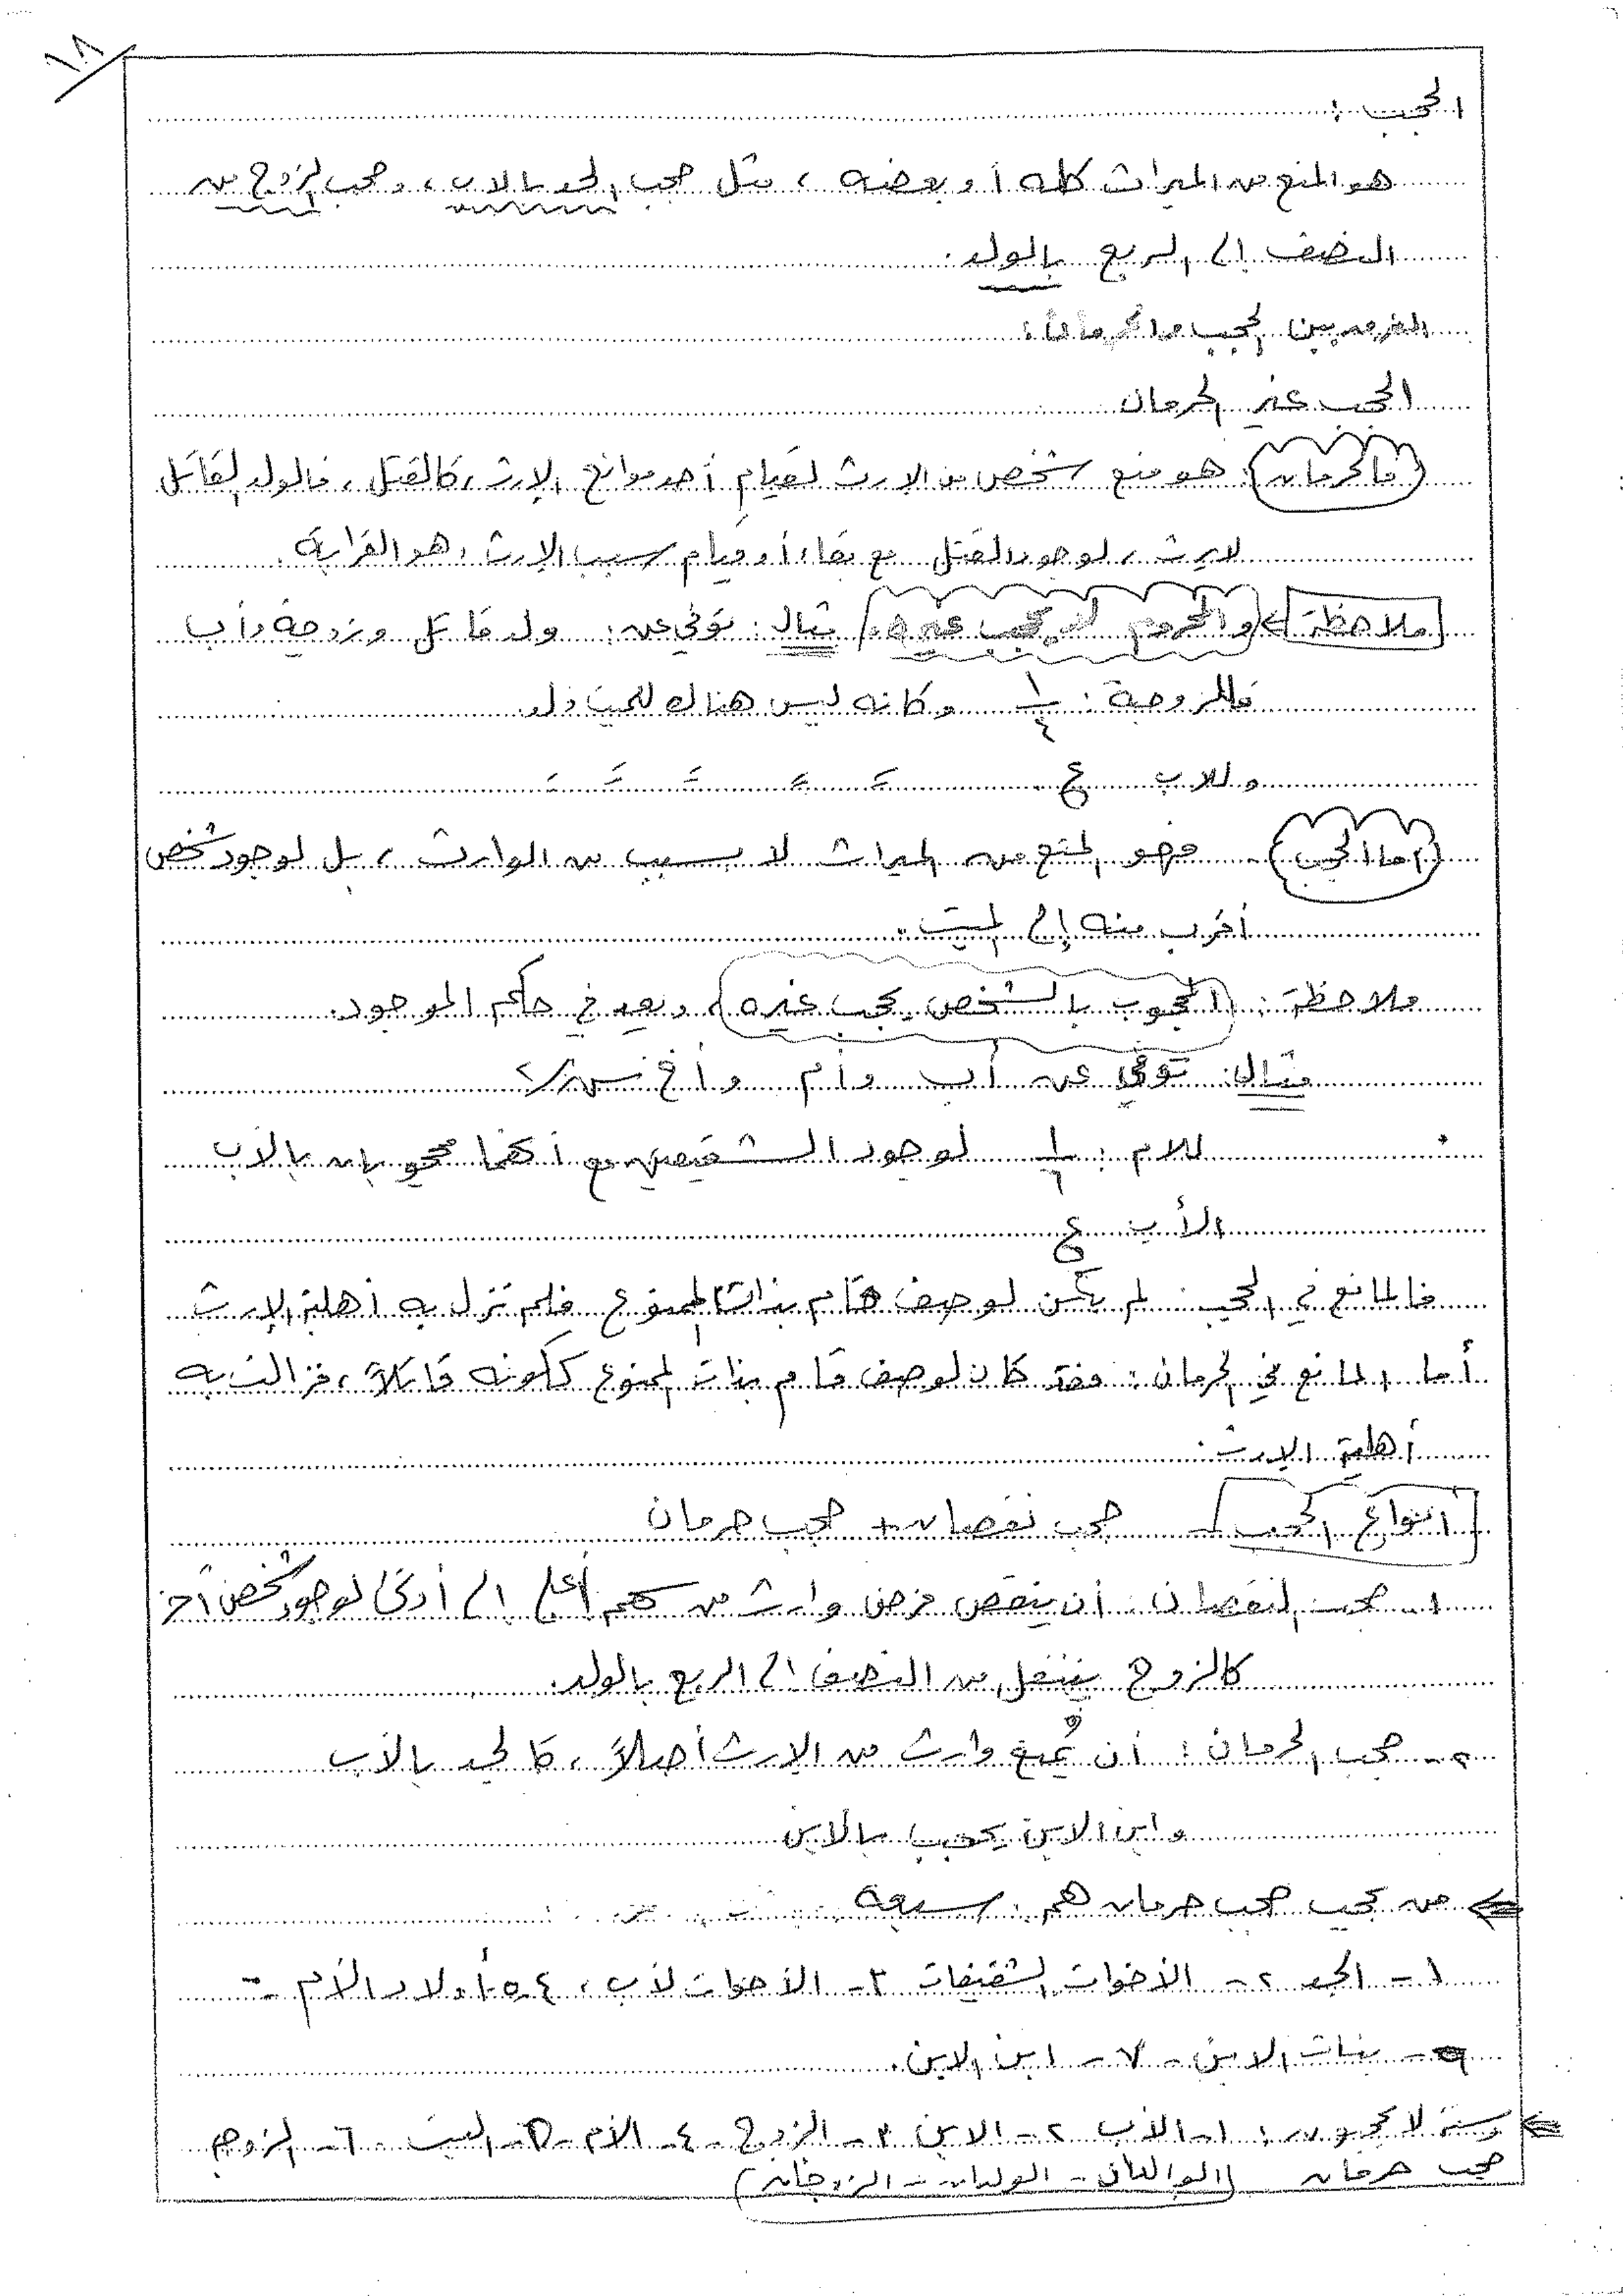 ١٨
الحجب :
هو المنع من الميراث كله أو بعضه ، مثل حجب الجد بالاب ، وحجب الزوج من
النصف إلى الربع بالولد .
الفرق بين الحجب والحرمان :
الحجب غير الحرمان
فالحرمان : هو منع شخص من الارث لقيام أحد موانع الإرث ، كالقتل ، فالولد القاتل
لا يرث ، لوجود القتل مع بقاء أو قيام سبب الإرث ، هو القرابة .
ملاحظة > والمحروم لا يحجب غيره . مثال : توفي عن : ولد قاتل وزوجة وأب
فللزوجة : ١/٤ وكأنه ليس هناك للميت ولد .
وللاب ع
أما الحجب فهو المنع من الميراث لا بسبب من الوارث ، بل لوجود شخص
أقرب منه إلى الميت .
ملاحظة : المحجوب بالشخص يحجب غيره ، ويعد في حكم الموجود .
مثال : توفي عن أب وأم وأخ ش/٢
للام : ١/٦ لوجود الشقيقين مع أنهما محجوبان بالأب
الأب ع
فالمانع في الحجب : لم يكن لوصف قام بذات الممنوع فلم تزل به أهلية الإرث
أما المانع في الحرمان : فقد كان لوصف قام بذات الممنوع ككونه قاتلاً ، فزالت به
أهلية الارث .
أنواع الحجب حجب نقصان + حجب حرمان
١- حجب النقصان : أن ينقص فرض وارث من سهم أعلى الى أدنى لوجود شخص آخر
كالزوج ينتقل من النصف الى الربع بالولد .
٢- حجب الحرمان : أن يُمنع وارث من الإرث أصلاً ، كالجد بالأب
وابن الابن يحجب بالابن
من يحجب حجب حرمان هم : سبعة
١- الجد ٢- الأخوات الشقيقات ٣- الأخوات لأب ، ٤ ، ٥ أولاد الأم -
٦- بنات الابن - ٧- ابن الابن .
وستة لا يحجبون : ١- الأب ٢- الابن ٣- الزوج - ٤- الأم - ٥- البنت - ٦- الزوجة
حجب حرمان (الوالدان - الولدان - الزوجان)